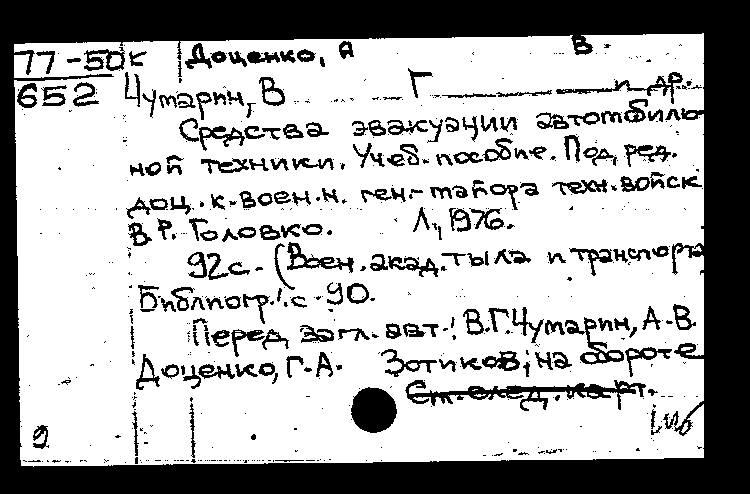 77-50к Доценко, А В.
652 Чумарин, В Г и др.
Средства эвакуации автомобиль-
ной техники. Учеб. пособие. Под ред.
доц. к. воен. н. ген.-майора техн. войск
В.Р. Головко. Л., 1976.
92 с. (Воен. акад. тыла и транспорта
Библиогр.: с. 90.
Перед загл. авт.: В.Г. Чумарин, А.В.
Доценко, Г.А. Зотиков; на обороте
См. след. карт.
9